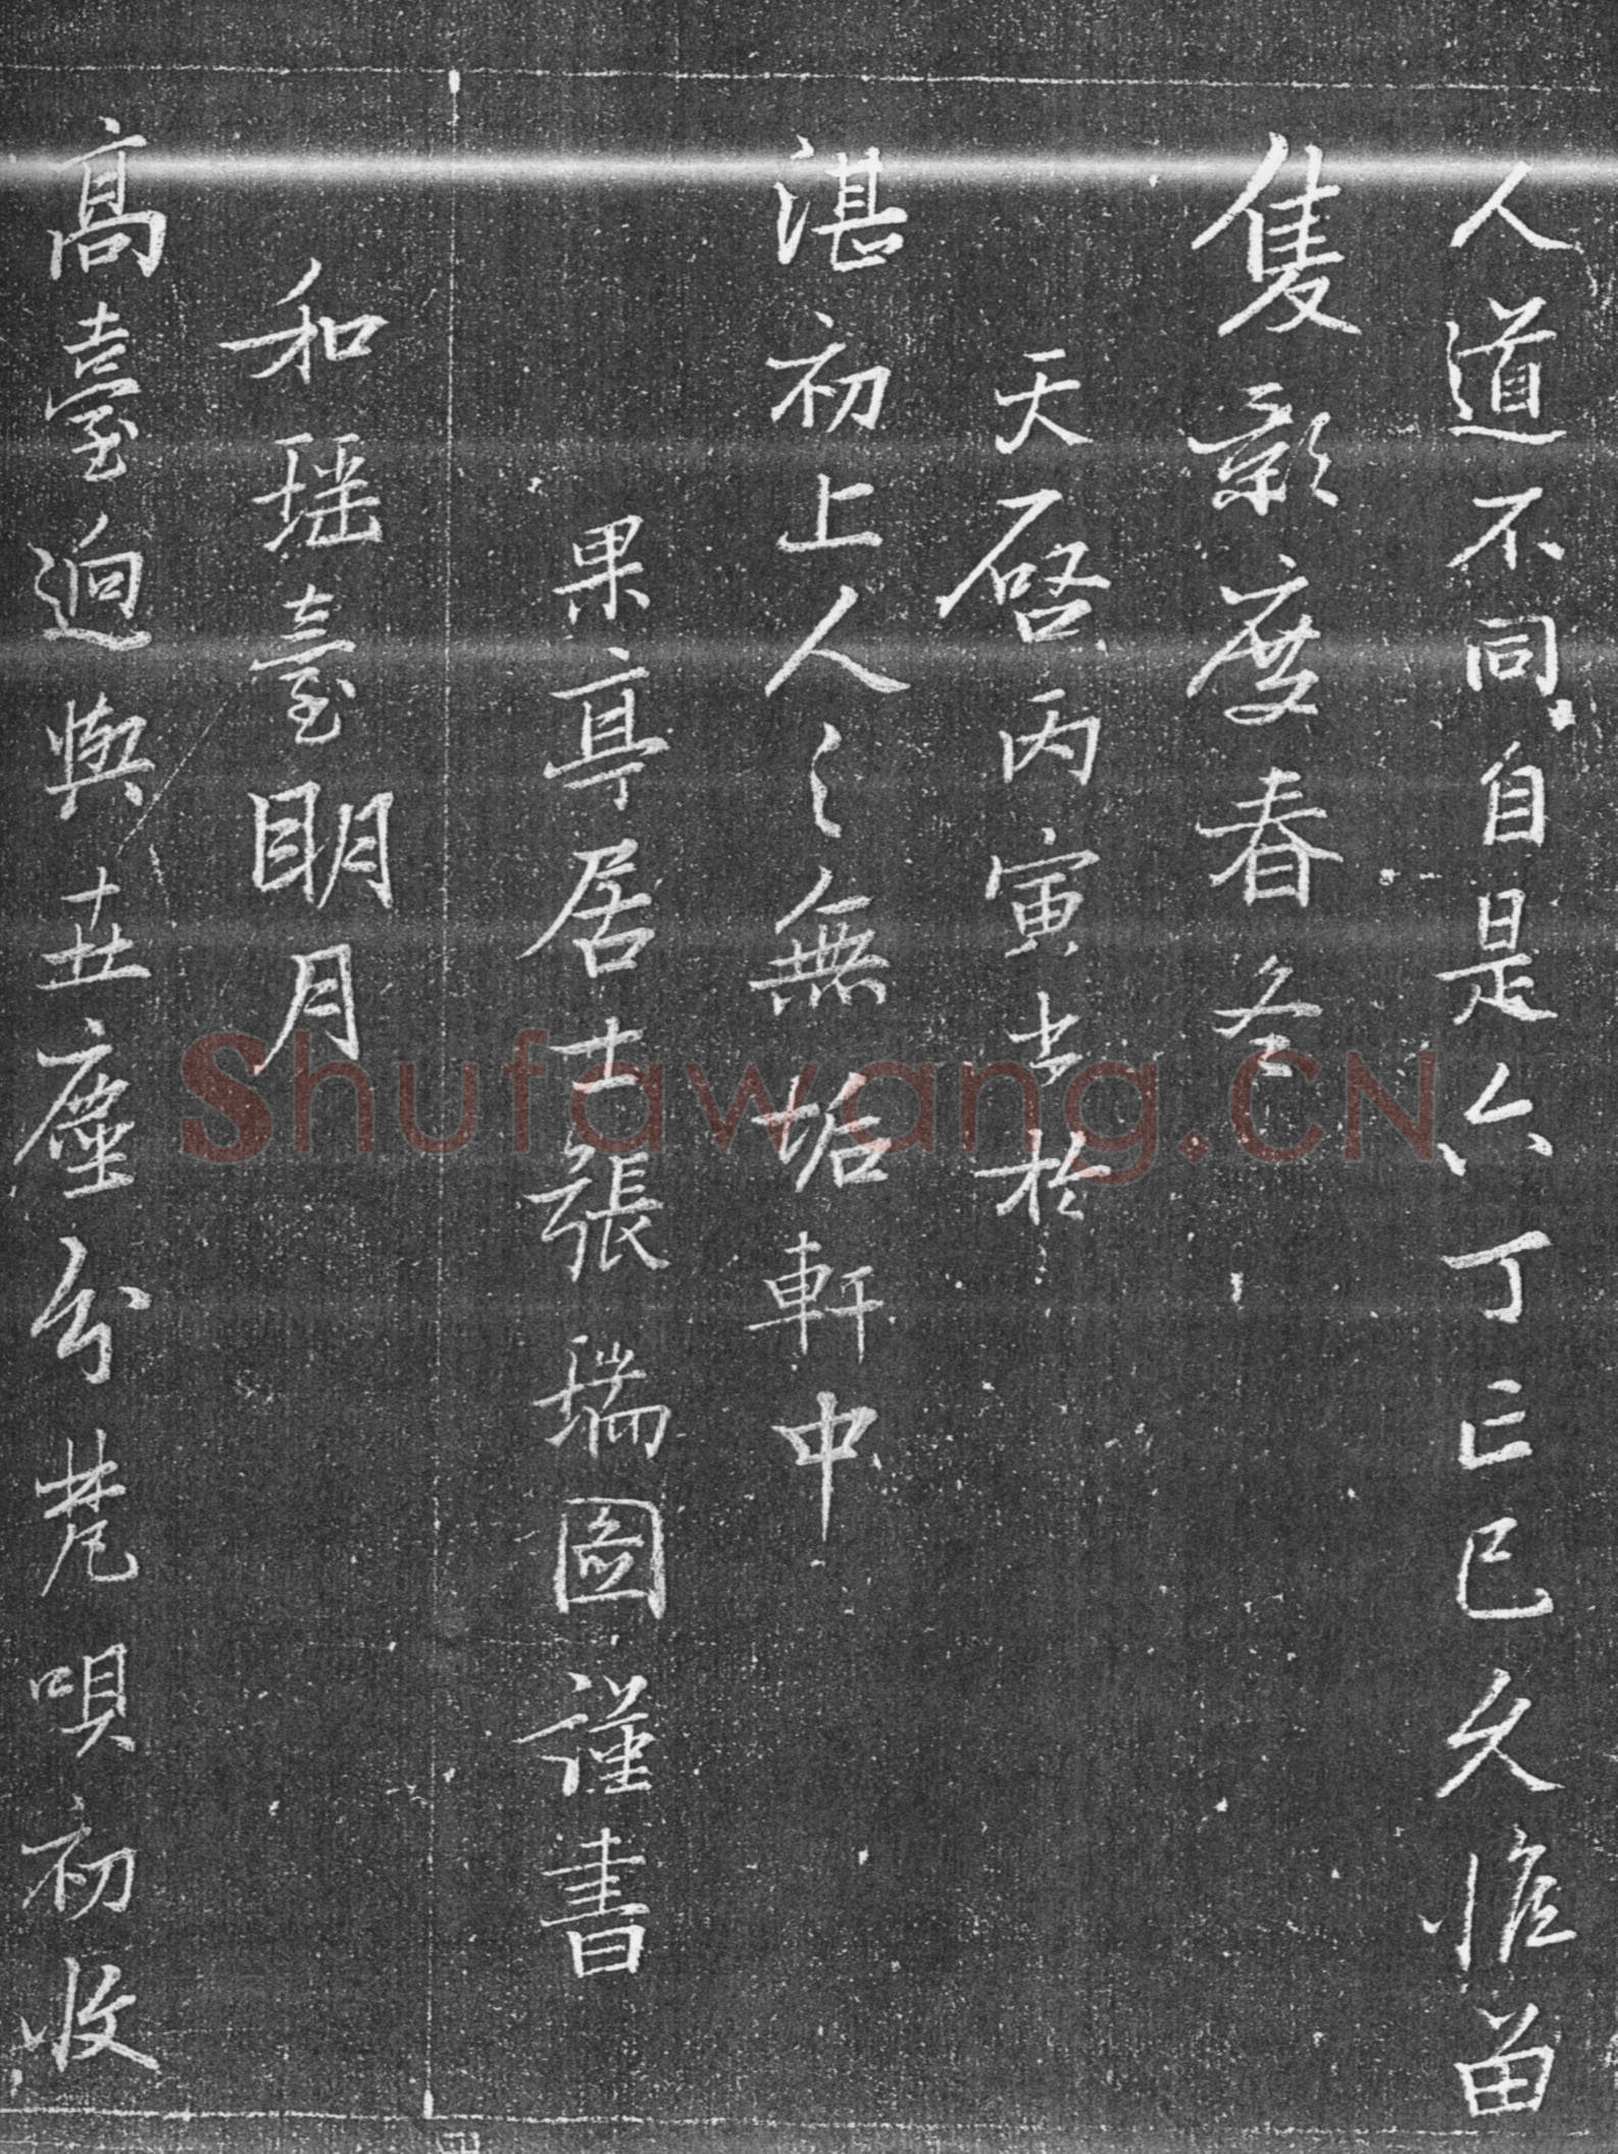 人道不同自是六丁亡已久惟留
隻影度春冬
天啓丙寅書於
湛初上人之無垢軒中
果亭居士張瑞圖謹書
和瑶臺明月
高臺迥與世塵分梵唄初收
Shufawang.CN